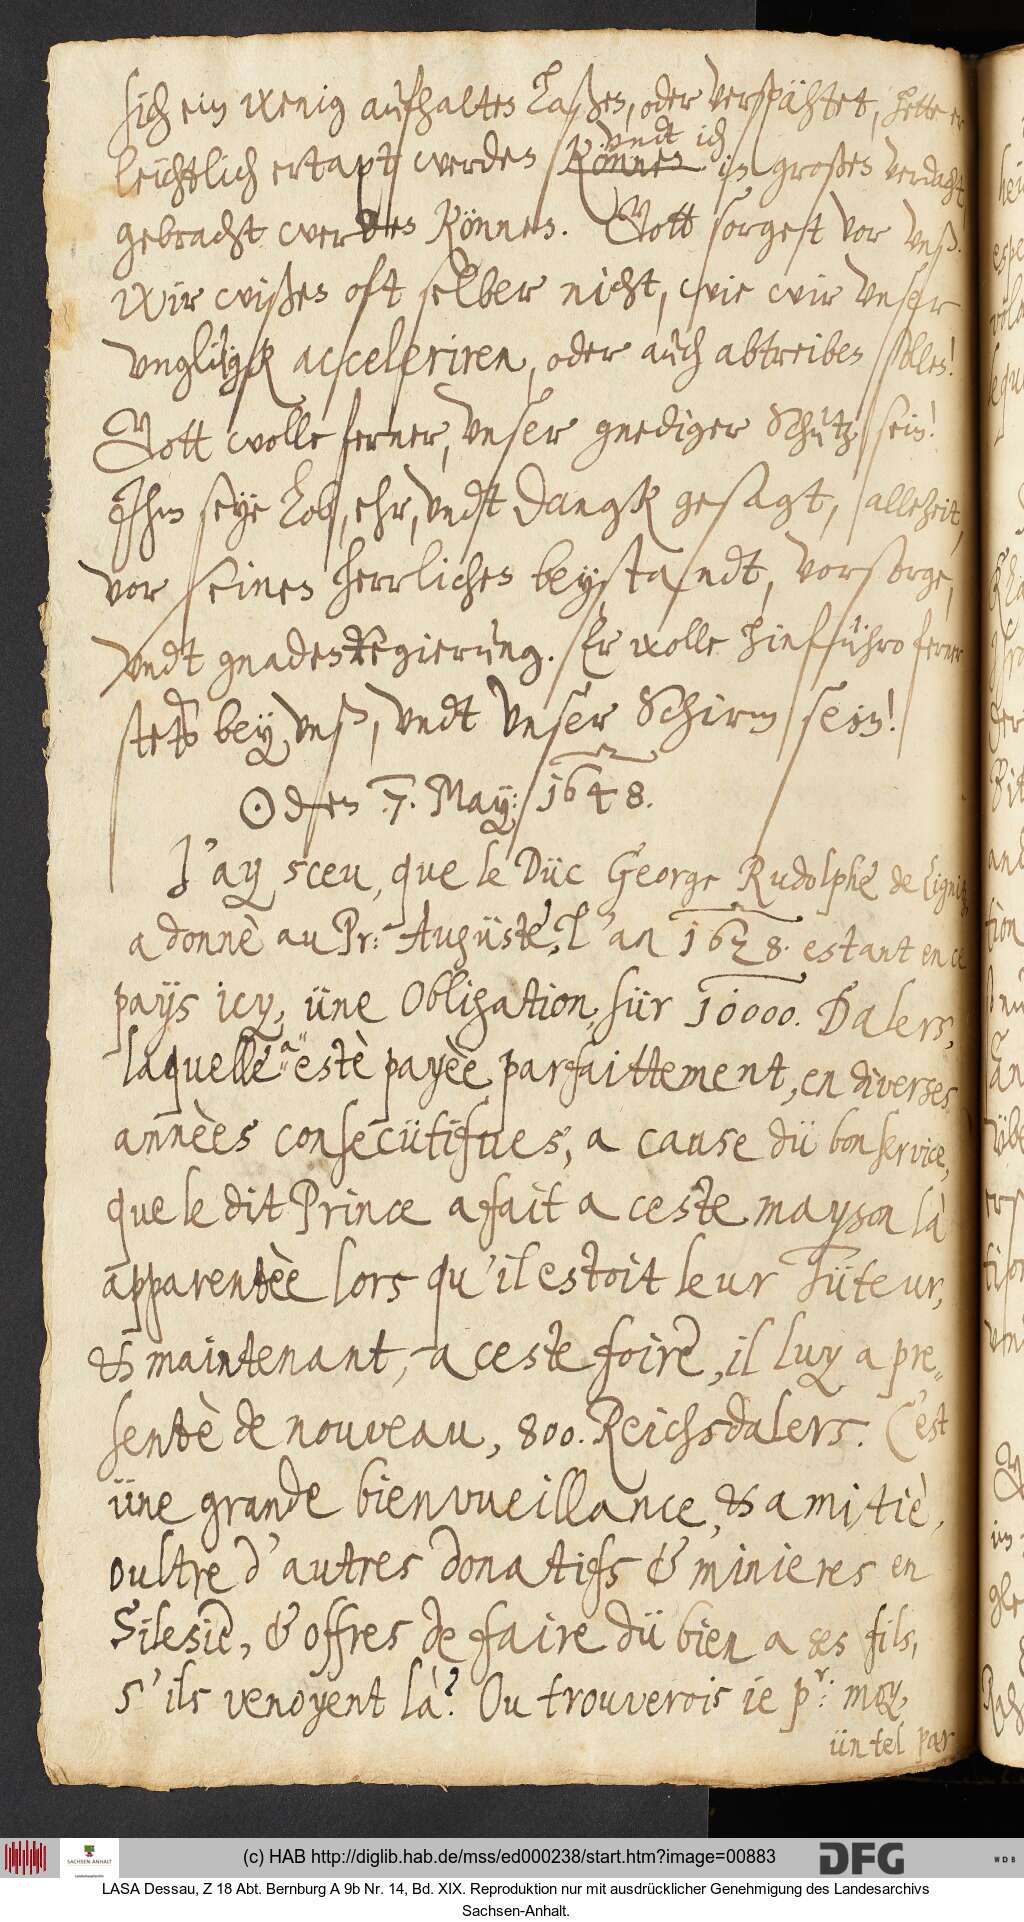 sich ein wenig aufhalten laßen, oder verspähtet, hette er
leichtlich ertapt werden können vndt ich in großen verdacht
gebracht werden können. Gott sorget vor vnß.
Wir wißen oft selber nicht, wie wir vnser
vnglügk acceleriren, oder auch abtreiben sollen!
Gott wolle ferner, vnser gnediger Schutz sein!
Ihm seye lob, ehr, vndt dangk gesagt, allezeit,
vor seinen herrlichen beystandt, vorsorge,
vndt gnadenRegierung. Er wolle hinfführo ferner
stets bey vnß, vndt vnser Schirm sein!
☉ den 7. May: 1648.
J'ay sceu, que le Düc George Rudolphe de Lignitz
a donnè au Pr: Augüste, l'an 1628. estant en ce
pays icy, üne Obligation, sür 10000. Dalers,
laquelle a estè payèe parfaittement, en diverses
annèes consecütifves, a cause dü bon service,
que le dit Prince a fait a ceste mayson là
apparentèe lors qu'il estoit leur Tüteur,
& maintenant, a ceste foire, il luy a pre-
sentè de nouveau, 800. Reichsdalers. C'est
üne grande bienvueillance, & amitiè,
oultre d'autres donatifs & minieres en
Silesie, & offres de faire dü bien a ses fils,
s'ils venoyent là? Ou trouverois ie pr: moy,
ün tel par
(c) HAB http://diglib.hab.de/mss/ed000238/start.htm?image=00883
SACHSEN-ANHALT
DFG
WDB
LASA Dessau, Z 18 Abt. Bernburg A 9b Nr. 14, Bd. XIX. Reproduktion nur mit ausdrücklicher Genehmigung des Landesarchivs
Sachsen-Anhalt.